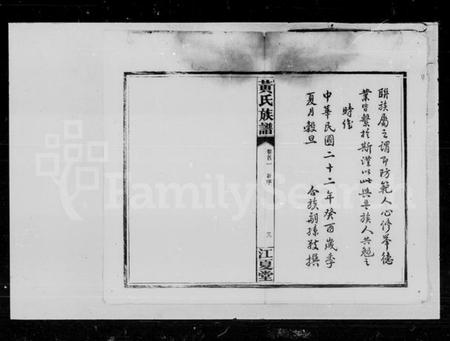 聯族屬之謂即防範人心修舉德
業皆繫於斯謹以此與吾族人共勉之
時維
中華民國二十二年癸酉歲季
夏月穀旦
合族嗣孫敬撰
黃氏族譜
卷首一
新序
江夏堂
FamilySearch